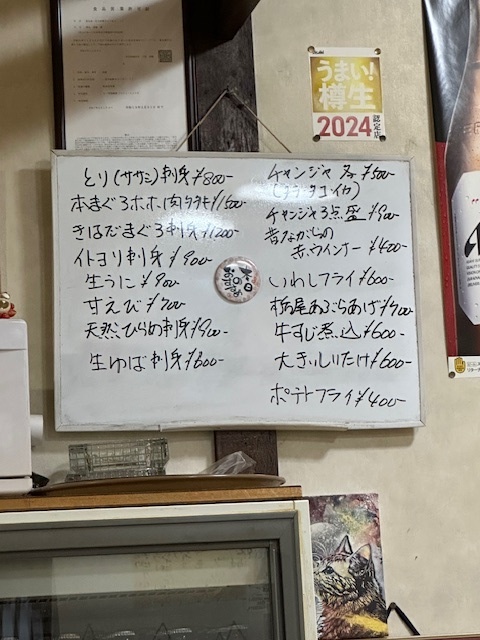 食品営業許可証
Asahi
うまい!
樽生
2024 認定店
とり(ササミ)刺身 ¥800-
本まぐろホホ肉タタキ ¥1600-
きはだまぐろ刺身 ¥1200-
イトヨリ刺身 ¥900-
生うに ¥900-
甘えび ¥700-
天然ひらめ刺身 ¥900-
生ゆば刺身 ¥600-
本日のおすすめ
チャンジャ 各 ¥500-
(タラ・タコ・イカ)
チャンジャ3点盛 ¥900-
昔ながらの
赤ウインナー ¥400-
いわしフライ ¥600-
栃尾あぶらあげ ¥700-
牛すじ煮込 ¥600-
大きいしいたけ ¥600-
ポテトフライ ¥400-